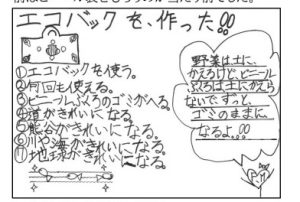 エコバックを、作った!!
①エコバックを使う。
②何回も使える。
③ビニールぶくろのゴミがへる。
④道がきれいになる。
⑤熊谷がきれいになる。
⑥川や海がきれいになる。
⑦地球がきれいになる。
野菜は土に、
かえるけど、ビニール
ぶくろは土にかえら
ないで、ずっと、
ゴミのままに、
なるよ。!!